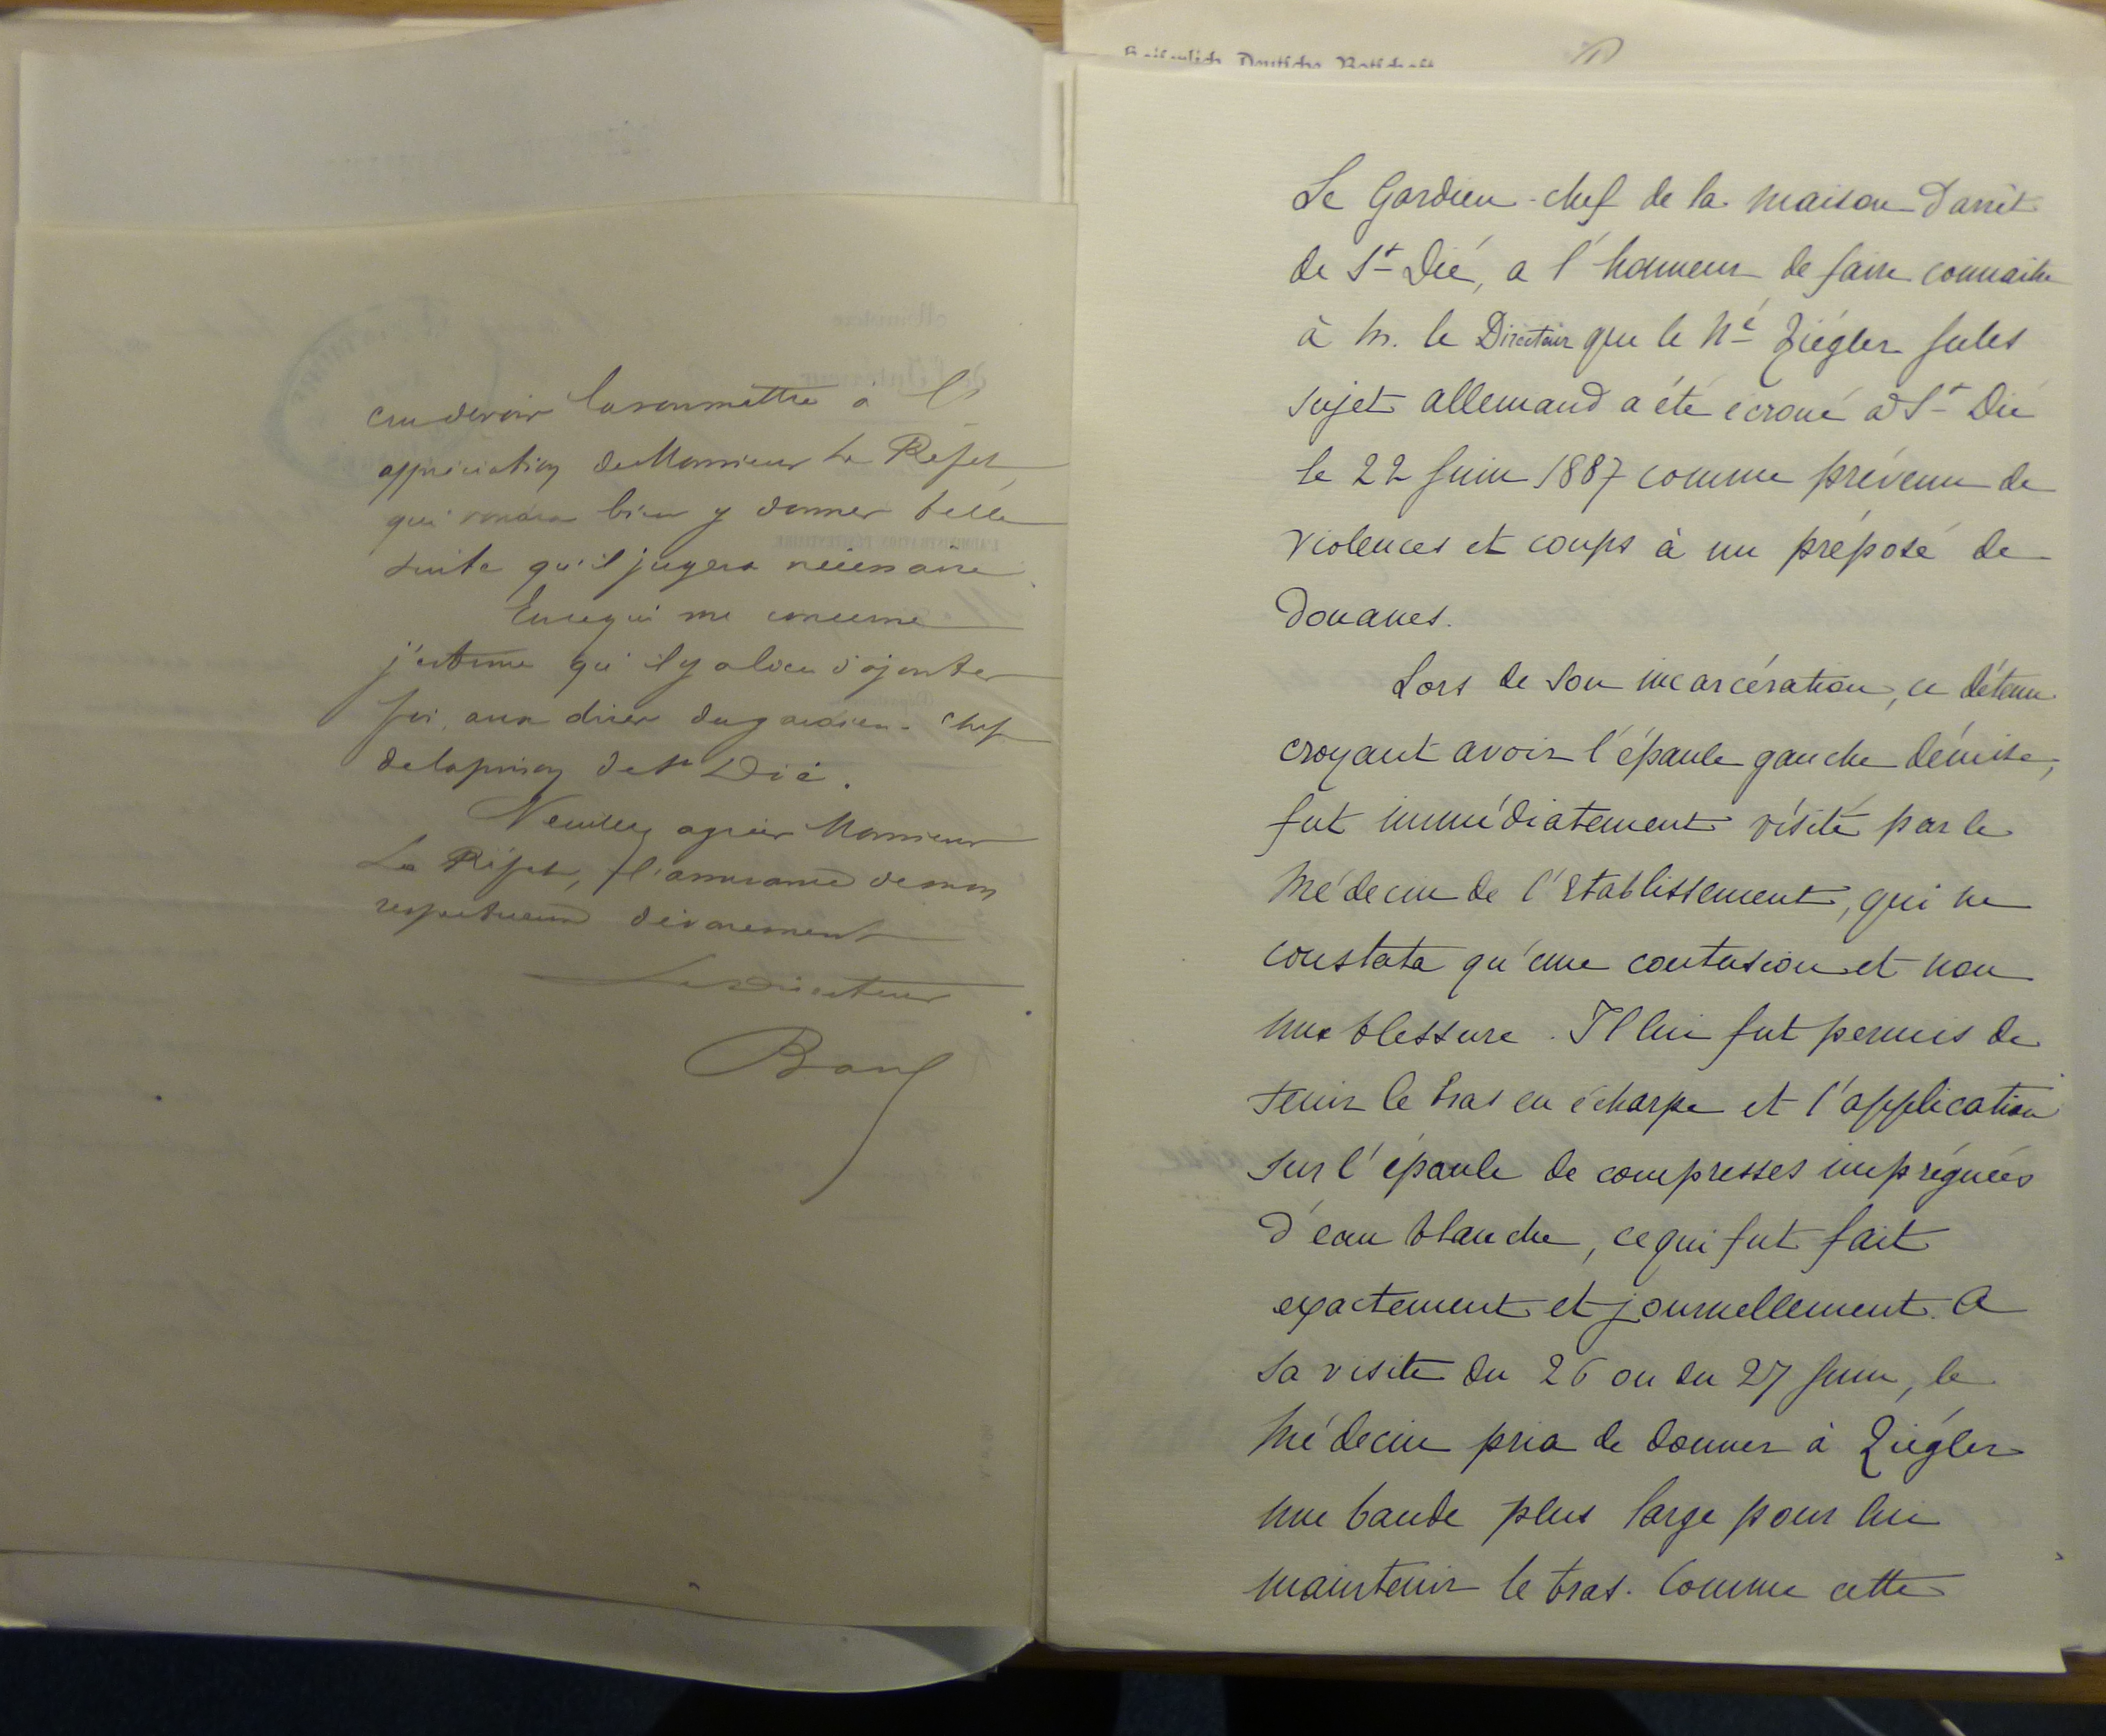 cru devoir la soumettre à l'
appréciation de Monsieur Le Préfet
qui voudra bien y donner telle
suite qu'il jugera nécessaire.
En ce qui me concerne
j'estime qu'il y a lieu d'ajouter
foi aux dires du gardien-chef
de la prison de St Dié.
Veuillez agréer Monsieur
Le Préfet, l'assurance de mon
respectueux dévouement
Le Directeur
Kaiserlich Deutsche Botschaft
Le Gardien-chef de la maison d'arrêt
de St Dié, a l'honneur de faire connaitre
à M. le Directeur que le Né Ziégler Jules
sujet allemand a été écroué à St Dié
le 22 Juin 1887 comme prévenu de
violences et coups à un préposé de
Douanes.
Lors de son incarcération, ce détenu
croyant avoir l'épaule gauche démise,
fut immédiatement visité par le
Médecin de l'Etablissement, qui ne
constata qu'une contusion et non
une blessure. Il lui fut permis de
tenir le bras en écharpe et l'application
sur l'épaule de compresses imprégnées
d'eau blanche, ce qui fut fait
exactement et journellement. A
sa visite du 26 ou du 27 Juin, le
Médecin pria de donner à Ziégler
une bande plus large pour lui
maintenir le bras. Comme cette